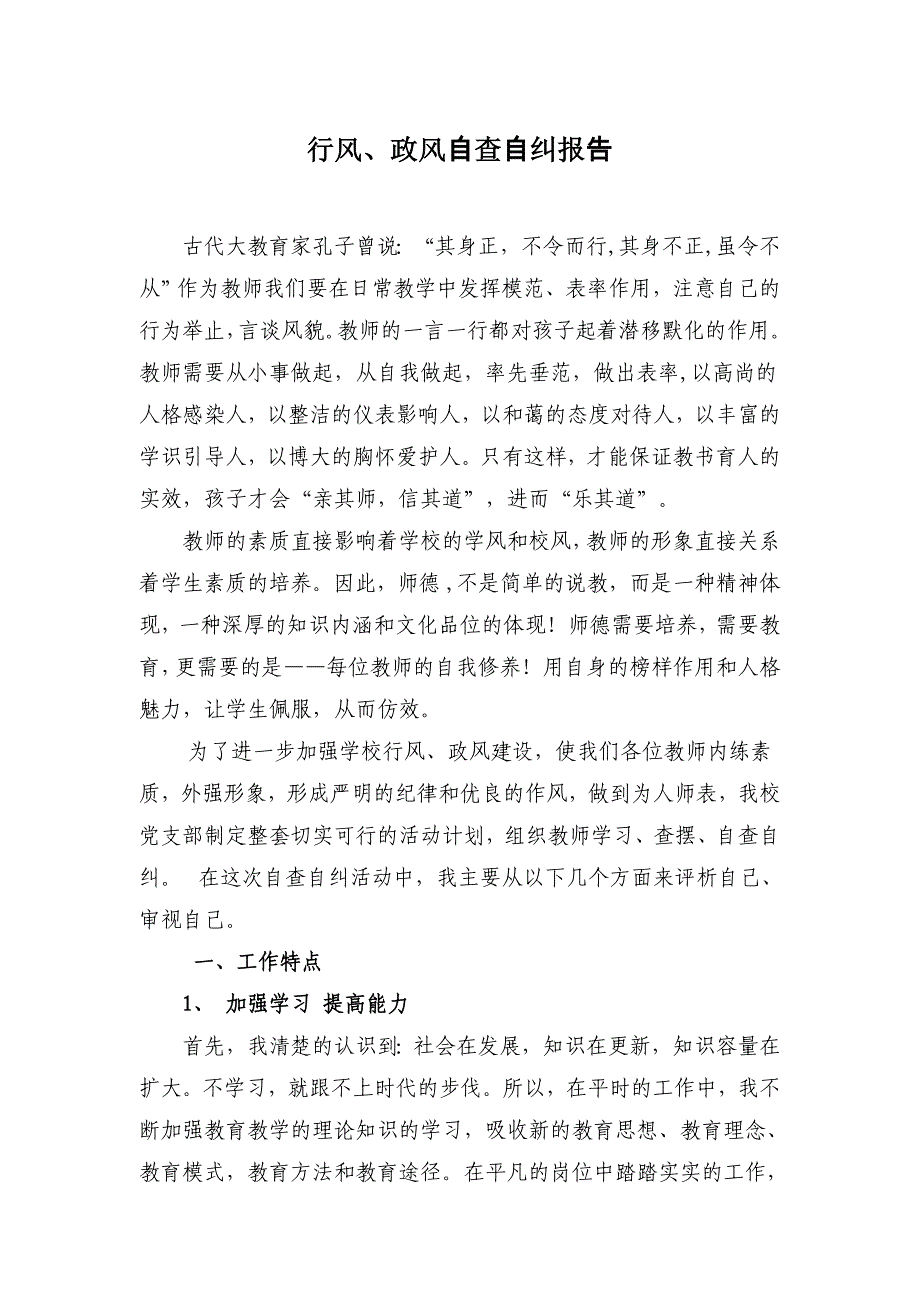 行风、政风自查自纠报告
古代大教育家孔子曾说：“其身正，不令而行,其身不正,虽令不
从”作为教师我们要在日常教学中发挥模范、表率作用，注意自己的
行为举止，言谈风貌。教师的一言一行都对孩子起着潜移默化的作用。
教师需要从小事做起，从自我做起，率先垂范，做出表率,以高尚的
人格感染人，以整洁的仪表影响人，以和蔼的态度对待人，以丰富的
学识引导人，以博大的胸怀爱护人。只有这样，才能保证教书育人的
实效，孩子才会“亲其师，信其道”，进而“乐其道”。
教师的素质直接影响着学校的学风和校风，教师的形象直接关系
着学生素质的培养。因此，师德,不是简单的说教，而是一种精神体
现，一种深厚的知识内涵和文化品位的体现！师德需要培养，需要教
育，更需要的是——每位教师的自我修养！用自身的榜样作用和人格
魅力，让学生佩服，从而仿效。
为了进一步加强学校行风、政风建设，使我们各位教师内练素
质，外强形象，形成严明的纪律和优良的作风，做到为人师表，我校
党支部制定整套切实可行的活动计划，组织教师学习、查摆、自查自
纠。 在这次自查自纠活动中，我主要从以下几个方面来评析自己、
审视自己。
一、工作特点
1、 加强学习 提高能力
首先，我清楚的认识到：社会在发展，知识在更新，知识容量在
扩大。不学习，就跟不上时代的步伐。所以，在平时的工作中，我不
断加强教育教学的理论知识的学习，吸收新的教育思想、教育理念、
教育模式，教育方法和教育途径。在平凡的岗位中踏踏实实的工作，